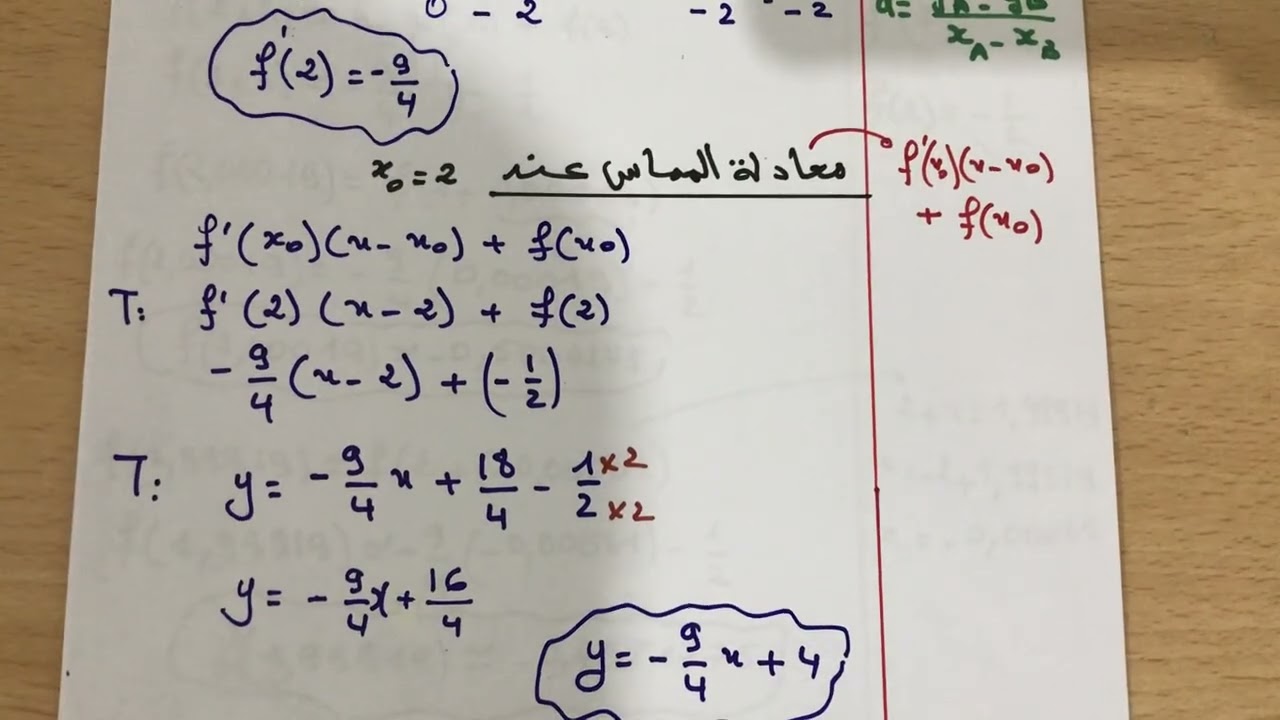 0 - 2
-2 -2
x_A - x_B
f'(2) = -9/4
معادلة المماس عند x₀ = 2
f'(x₀)(x - x₀)
+ f(x₀)
f'(x₀)(x - x₀) + f(x₀)
T: f'(2)(x - 2) + f(2)
-9/4 (x - 2) + (-1/2)
T: y = -9/4 x + 18/4 - 1×2/2×2
y = -9/4 x + 16/4
y = -9/4 x + 4